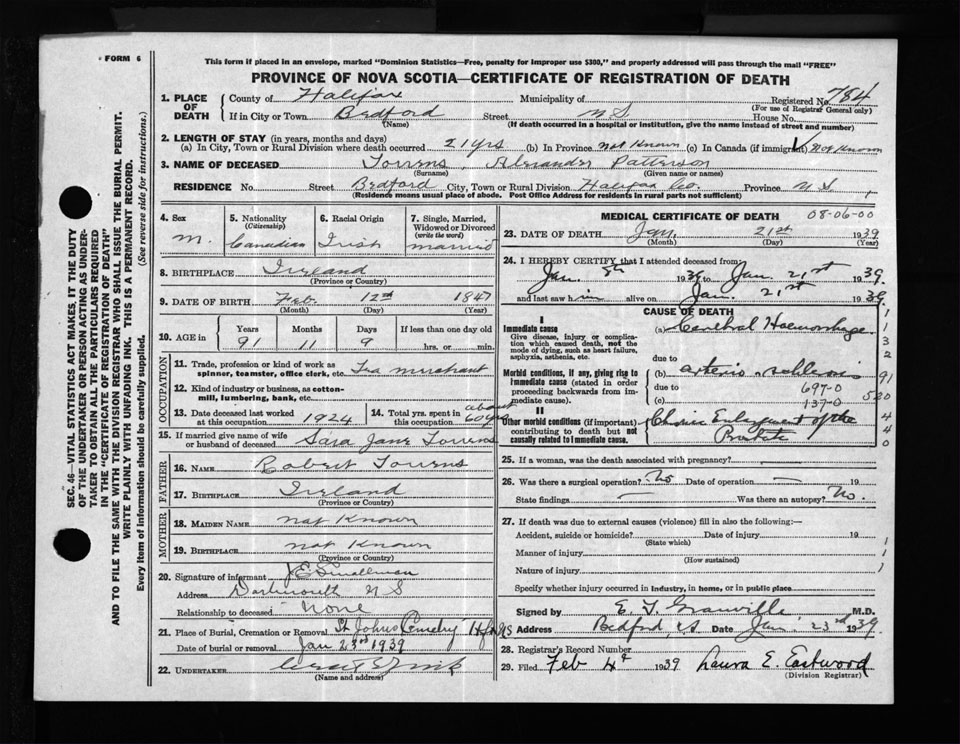 FORM 6
This form if placed in an envelope, marked "Dominion Statistics—Free, penalty for improper use $300," and properly addressed will pass through the mail "FREE"
PROVINCE OF NOVA SCOTIA—CERTIFICATE OF REGISTRATION OF DEATH
SEC. 46—VITAL STATISTICS ACT MAKES, IT THE DUTY
OF THE UNDERTAKER OR PERSON ACTING AS UNDER-
TAKER TO OBTAIN ALL THE PARTICULARS REQUIRED
IN THE "CERTIFICATE OF REGISTRATION OF DEATH"
AND TO FILE THE SAME WITH THE DIVISION REGISTRAR WHO SHALL ISSUE THE BURIAL PERMIT.
WRITE PLAINLY WITH UNFADING INK. THIS IS A PERMANENT RECORD.
Every item of Information should be carefully supplied. (See reverse side for instructions.)
1. PLACE OF DEATH County of Halifax Municipality of Registered No. 784
(For use of Registrar General only)
If in City or Town Bedford Street N S House No.
(Name) (If death occurred in a hospital or institution, give the name instead of street and number)
2. LENGTH OF STAY (in years, months and days)
(a) In City, Town or Rural Division where death occurred 21 yrs (b) In Province not Known (c) In Canada (if immigrant) Not Known
3. NAME OF DECEASED Torrens Alexander Patterson
(Surname) (Given name or names)
RESIDENCE No. Street Bedford City, Town or Rural Division Halifax Co. Province N S
(Residence means usual place of abode. Post Office Address for residents in rural parts not sufficient)
4. Sex M.
5. Nationality (Citizenship) Canadian
6. Racial Origin Irish
7. Single, Married, Widowed or Divorced (write the word) married
8. BIRTHPLACE Ireland
(Province or Country)
9. DATE OF BIRTH Feb 12th 1847
(Month) (Day) (Year)
10. AGE in Years 91 Months 11 Days 9 If less than one day old hrs. or min.
OCCUPATION
11. Trade, profession or kind of work as spinner, teamster, office clerk, etc. Tea merchant
12. Kind of industry or business, as cotton-mill, lumbering, bank, etc.
13. Date deceased last worked at this occupation 1924
14. Total yrs. spent in this occupation about 60 yrs
15. If married give name of wife or husband of deceased Sara Jane Torrens
FATHER
16. NAME Robert Torrens
17. BIRTHPLACE Ireland
(Province or Country)
MOTHER
18. MAIDEN NAME not Known
19. BIRTHPLACE not Known
(Province or Country)
20. Signature of informant J E Smallman
Address Dartmouth N S
Relationship to deceased None
21. Place of Burial, Cremation or Removal St Johns Cemetry Hfx NS
Date of burial or removal Jan 23rd 1939
22. UNDERTAKER
(Name and address)
MEDICAL CERTIFICATE OF DEATH 08-06-00
23. DATE OF DEATH Jan. 21st 1939
(Month) (Day) (Year)
24. I HEREBY CERTIFY that I attended deceased from:
Jan. 8th 1939 to Jan 21st 1939.
and last saw him alive on Jan. 21st 1939.
CAUSE OF DEATH
I
Immediate cause
Give disease, injury or complication which caused death, not the mode of dying, such as heart failure, asphyxia, asthenia, etc.
(a) Cerebral Haemorrhage
due to
Morbid conditions, if any, giving rise to immediate cause (stated in order proceeding backwards from immediate cause).
(b) arterio sclerosis
due to 697-0
(c) 137-0
II
Other morbid conditions (if important) contributing to death but not causally related to immediate cause.
Chronic Enlargement of the
Prostate
1
1
3
2
91
520
4
4
0
25. If a woman, was the death associated with pregnancy?
26. Was there a surgical operation? No Date of operation — 19
State findings — Was there an autopsy? No.
27. If death was due to external causes (violence) fill in also the following:—
Accident, suicide or homicide? Date of injury 19
(State which)
Manner of injury
(How sustained)
Nature of injury
Specify whether injury occurred in industry, in home, or in public place
Signed by E. T. Granville M.D.
Address Bedford, N.S Date Jan 23rd 1939.
28. Registrar's Record Number
29. Filed Feb 4th 1939 Laura E. Eastwood
(Division Registrar)